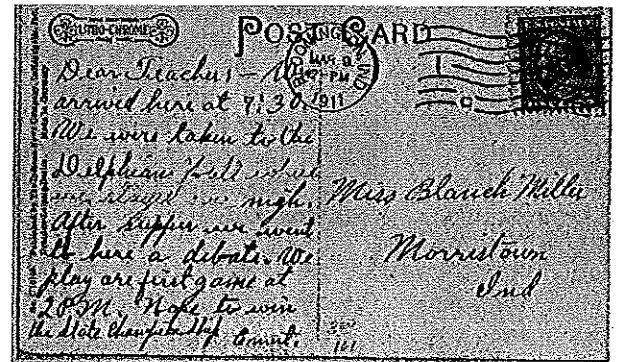 LITHO-CHROME
POST CARD
BLOOMINGTON, IND
MAR 9
PM
1911
Dear Teacher:- We
arrived here at 7:30
We were taken to the
Delphian Hall where
we stayed nigh.
After supper we went
to here a debate. We
play are first game at
2 P.M. Hope to win
the State Championship
Miss Blanch Miller
Morristown
Ind